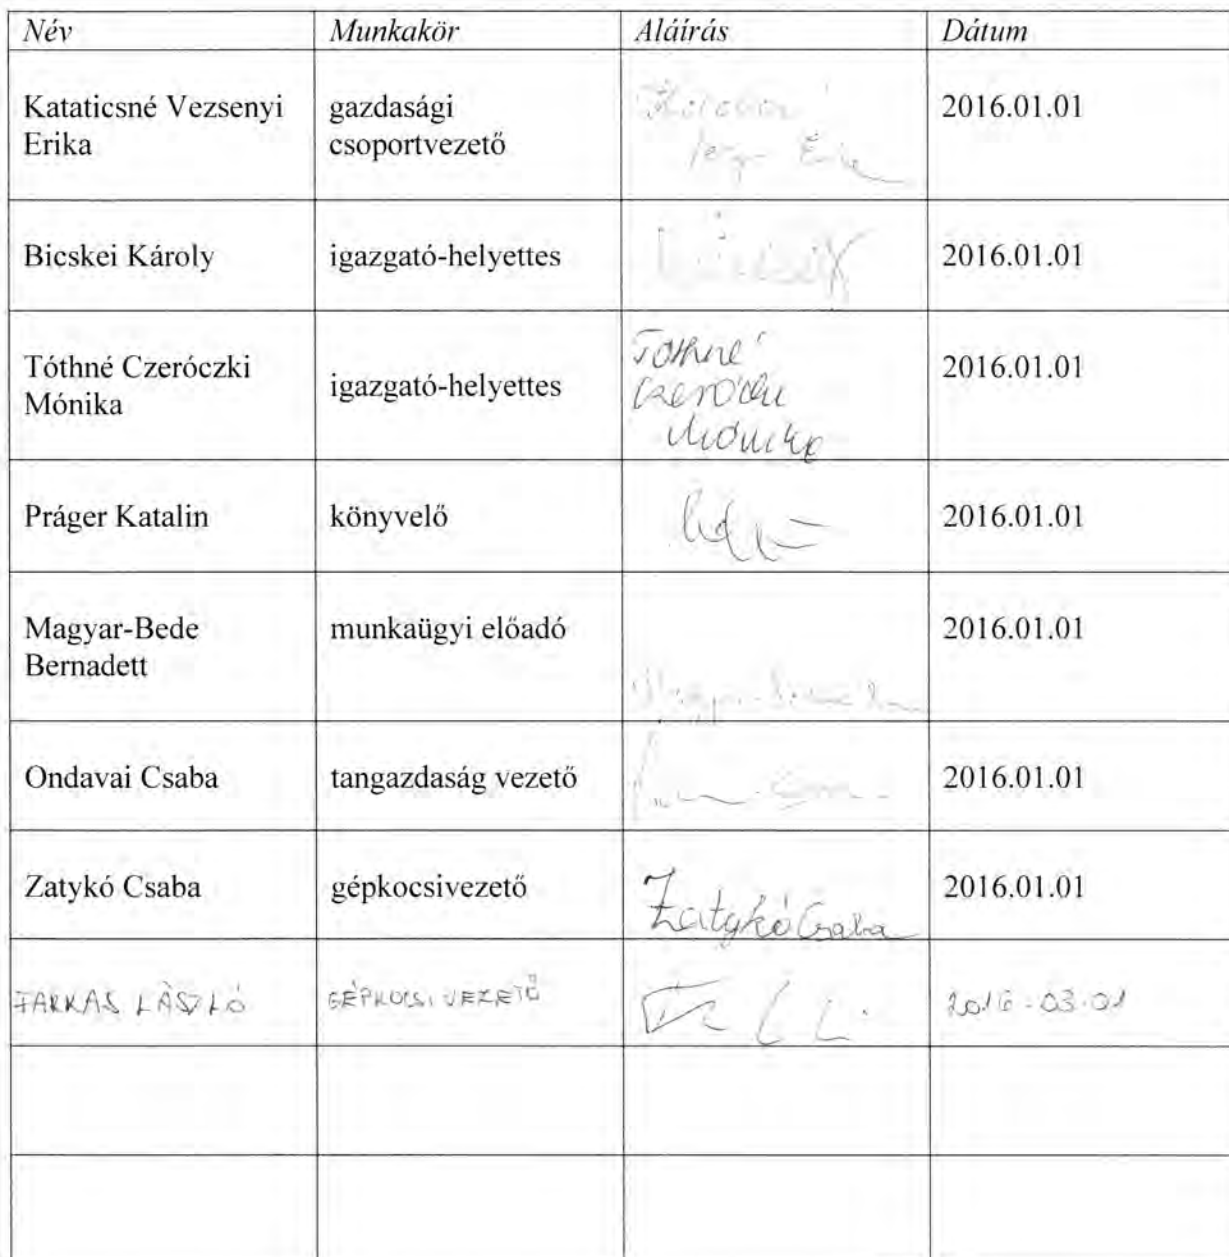 Név Munkakör Aláírás Dátum
Kataticsné Vezsenyi Erika gazdasági csoportvezető 2016.01.01
Bicskei Károly igazgató-helyettes 2016.01.01
Tóthné Czeróczki Mónika igazgató-helyettes Tóthné Czeróczki Mónika 2016.01.01
Práger Katalin könyvelő 2016.01.01
Magyar-Bede Bernadett munkaügyi előadó 2016.01.01
Ondavai Csaba tangazdaság vezető 2016.01.01
Zatykó Csaba gépkocsivezető Zatykó Csaba 2016.01.01
FARKAS LÁSZLÓ GÉPKOCSIVEZETŐ 2016-03-01